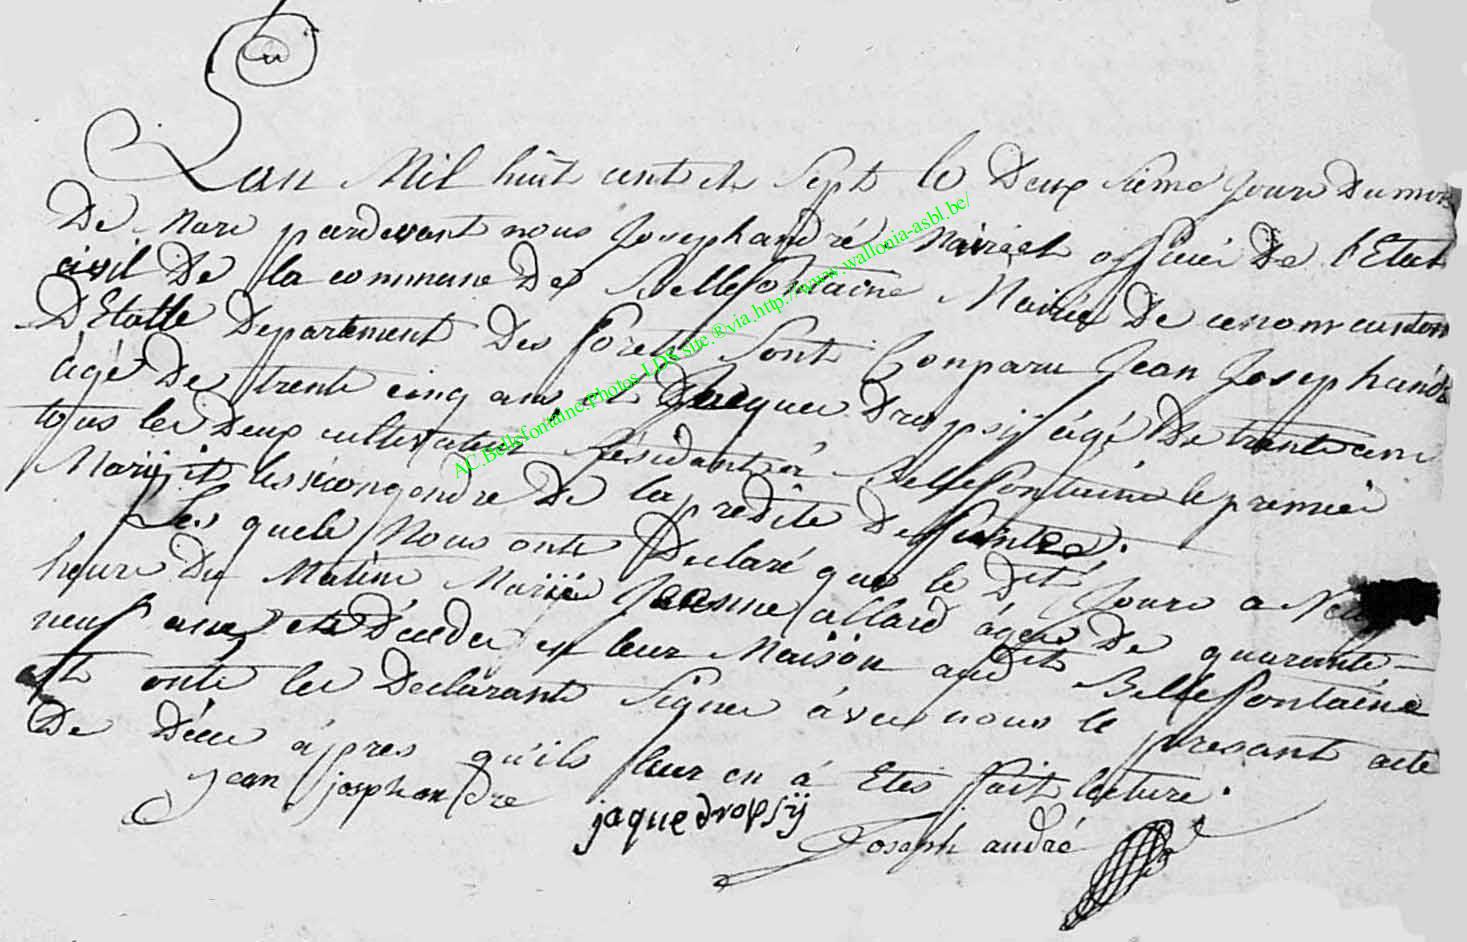 Lan Mil huit cent et Sept le Deux sieme Jour Du mois
De Mars pardevant nous Joseph andré Maire et officier De l'Etat
civil De la commune De Bellefontaine Mairie De ce nom canton
D'Etalle Departement Des Forets Sont Conparu Jean Joseph andré
âgé De trente cinq ans et Jacque Dropsij âgé De trente ans
tous les Deux cultivateur Résidant á Bellefontaine le premier
Marij et le second gendre De la predite Deffunte.
Les quels Nous onts Declaré que le Dit Jours a Neuf
heure Du Matin Marie Jeanne allard âgée De quarante
neuf ans est Décédée en leur Maison audit Bellefontaine
et onts les Declarant Signer ávec nous le present acte
De Déces ápres qu'ils leur en á Etes fait lecture.
Jean joseph andre
jaque dropsij
Joseph andré
AC.Bellefontaine.Photos-LDS site.®via.http://www.wallonia-asbl.be/